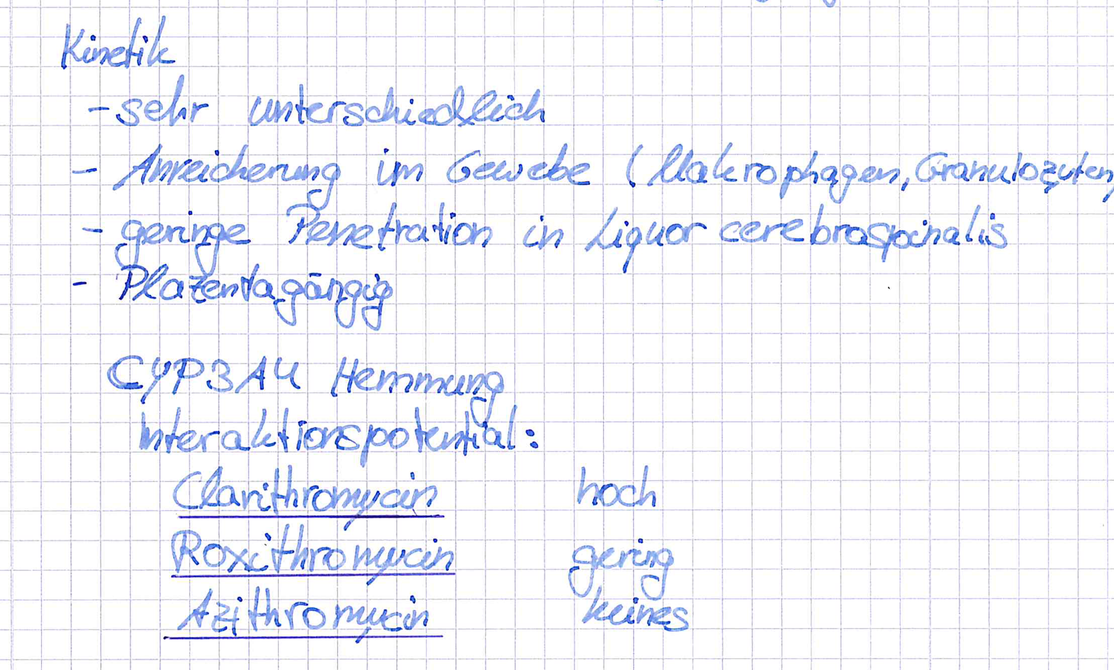 Kinetik
- sehr unterschiedlich
- Anreicherung im Gewebe (Makrophagen, Granulozyten
- geringe Penetration in Liquor cerebrospinalis
- Plazentagängig
CYP3A4 Hemmung
Interaktionspotential:
Clarithromycin hoch
Roxithromycin gering
Azithromycin keines